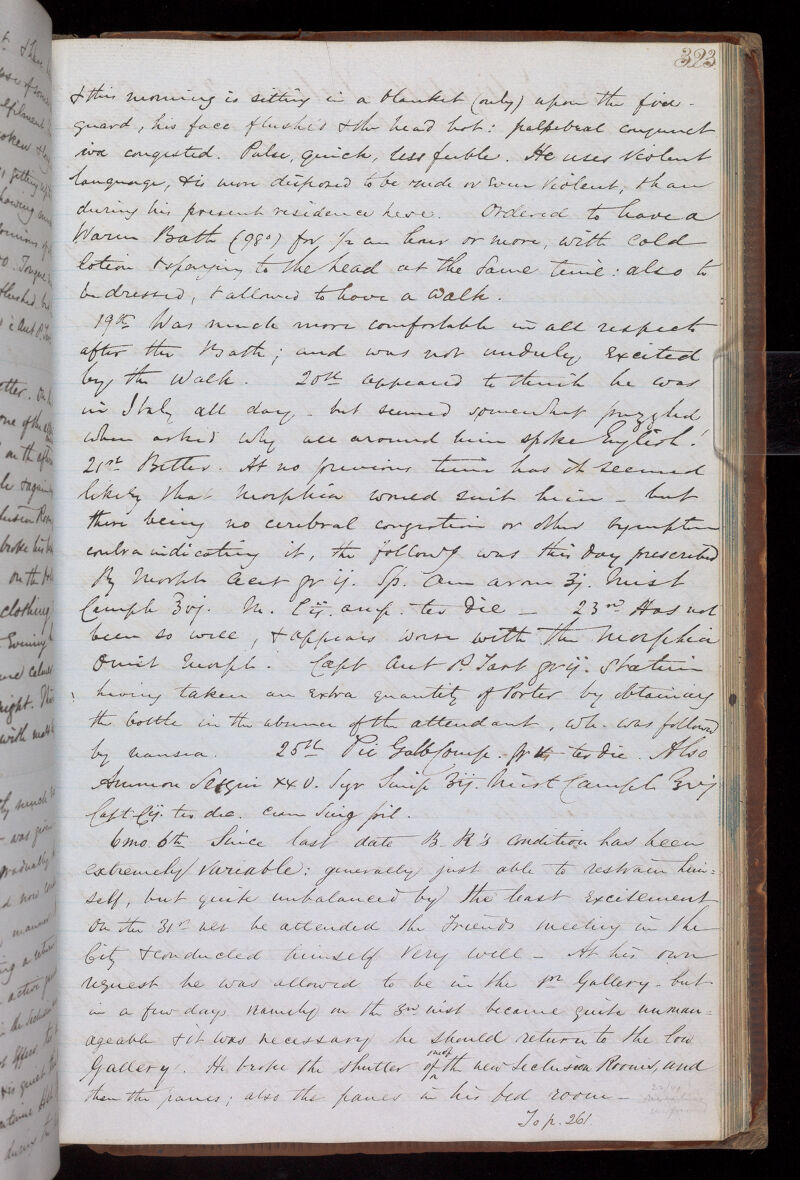 323
& this morning is sitting in a blanket (only) upon the fire-
guard, his face flushed & the head hot: palpebral conjunct
iva congested. Pulse, quick, less feeble. He uses violent
language, & is more disposed to be rude or even violent, than
during his present residence here. Ordered to have a
Warm Bath (98°) for ½ an hour or more, with cold
lotion & sponging to the head at the same time: also to
be dressed, & allowed to have a walk.
19th Was much more comfortable in all respects
after the Bath; and was not unduly excited
by the walk. 20th appeared to think he was
in Italy all day - but seemed somewhat puzzled
when asked why all around him spoke English!
21st Better. At no previous time has it seemed
likely that Morphia would suit him - but
there being no cerebral congestion or other symptom
contraindicating it, the followg was this day prescribed
Rx Morph Acet gr ij. Sp. Am arom ʒj. Mist
Camph ʒvj. M. Cij. amp. ter die - 23rd Has not
been so well, & appears worse with the Morphia
Omit Morph. Capt Ant P. Tart gr ij. Statim
having taken an extra quantity of Porter by obtaining
the bottle in the absence of the attendant, wh. was followed
by nausea. 25th Pil Galb Comp. gr ter die. Also
Ammon Sesqui xxv. Syr Simp ʒij. Mist Camph ʒvj
Capt. Cij. ter die. cum Sing pil.
6mo. 6th Since last date B. R's condition has been
extremely variable: generally just able to restrain him=
self, but quite unbalanced by the least excitement
On the 31st ult he attended the Friends meeting in the
City & conducted himself very well - At his own
request he was allowed to be in the Gallery - but
in a few days namely on the 3rd inst became quite unman=
ageable & it was necessary he should return to the low
Gallery. He broke the shutter of one of the new Seclusion Rooms, and
then the panes; also the panes in his bed room -
To p. 261